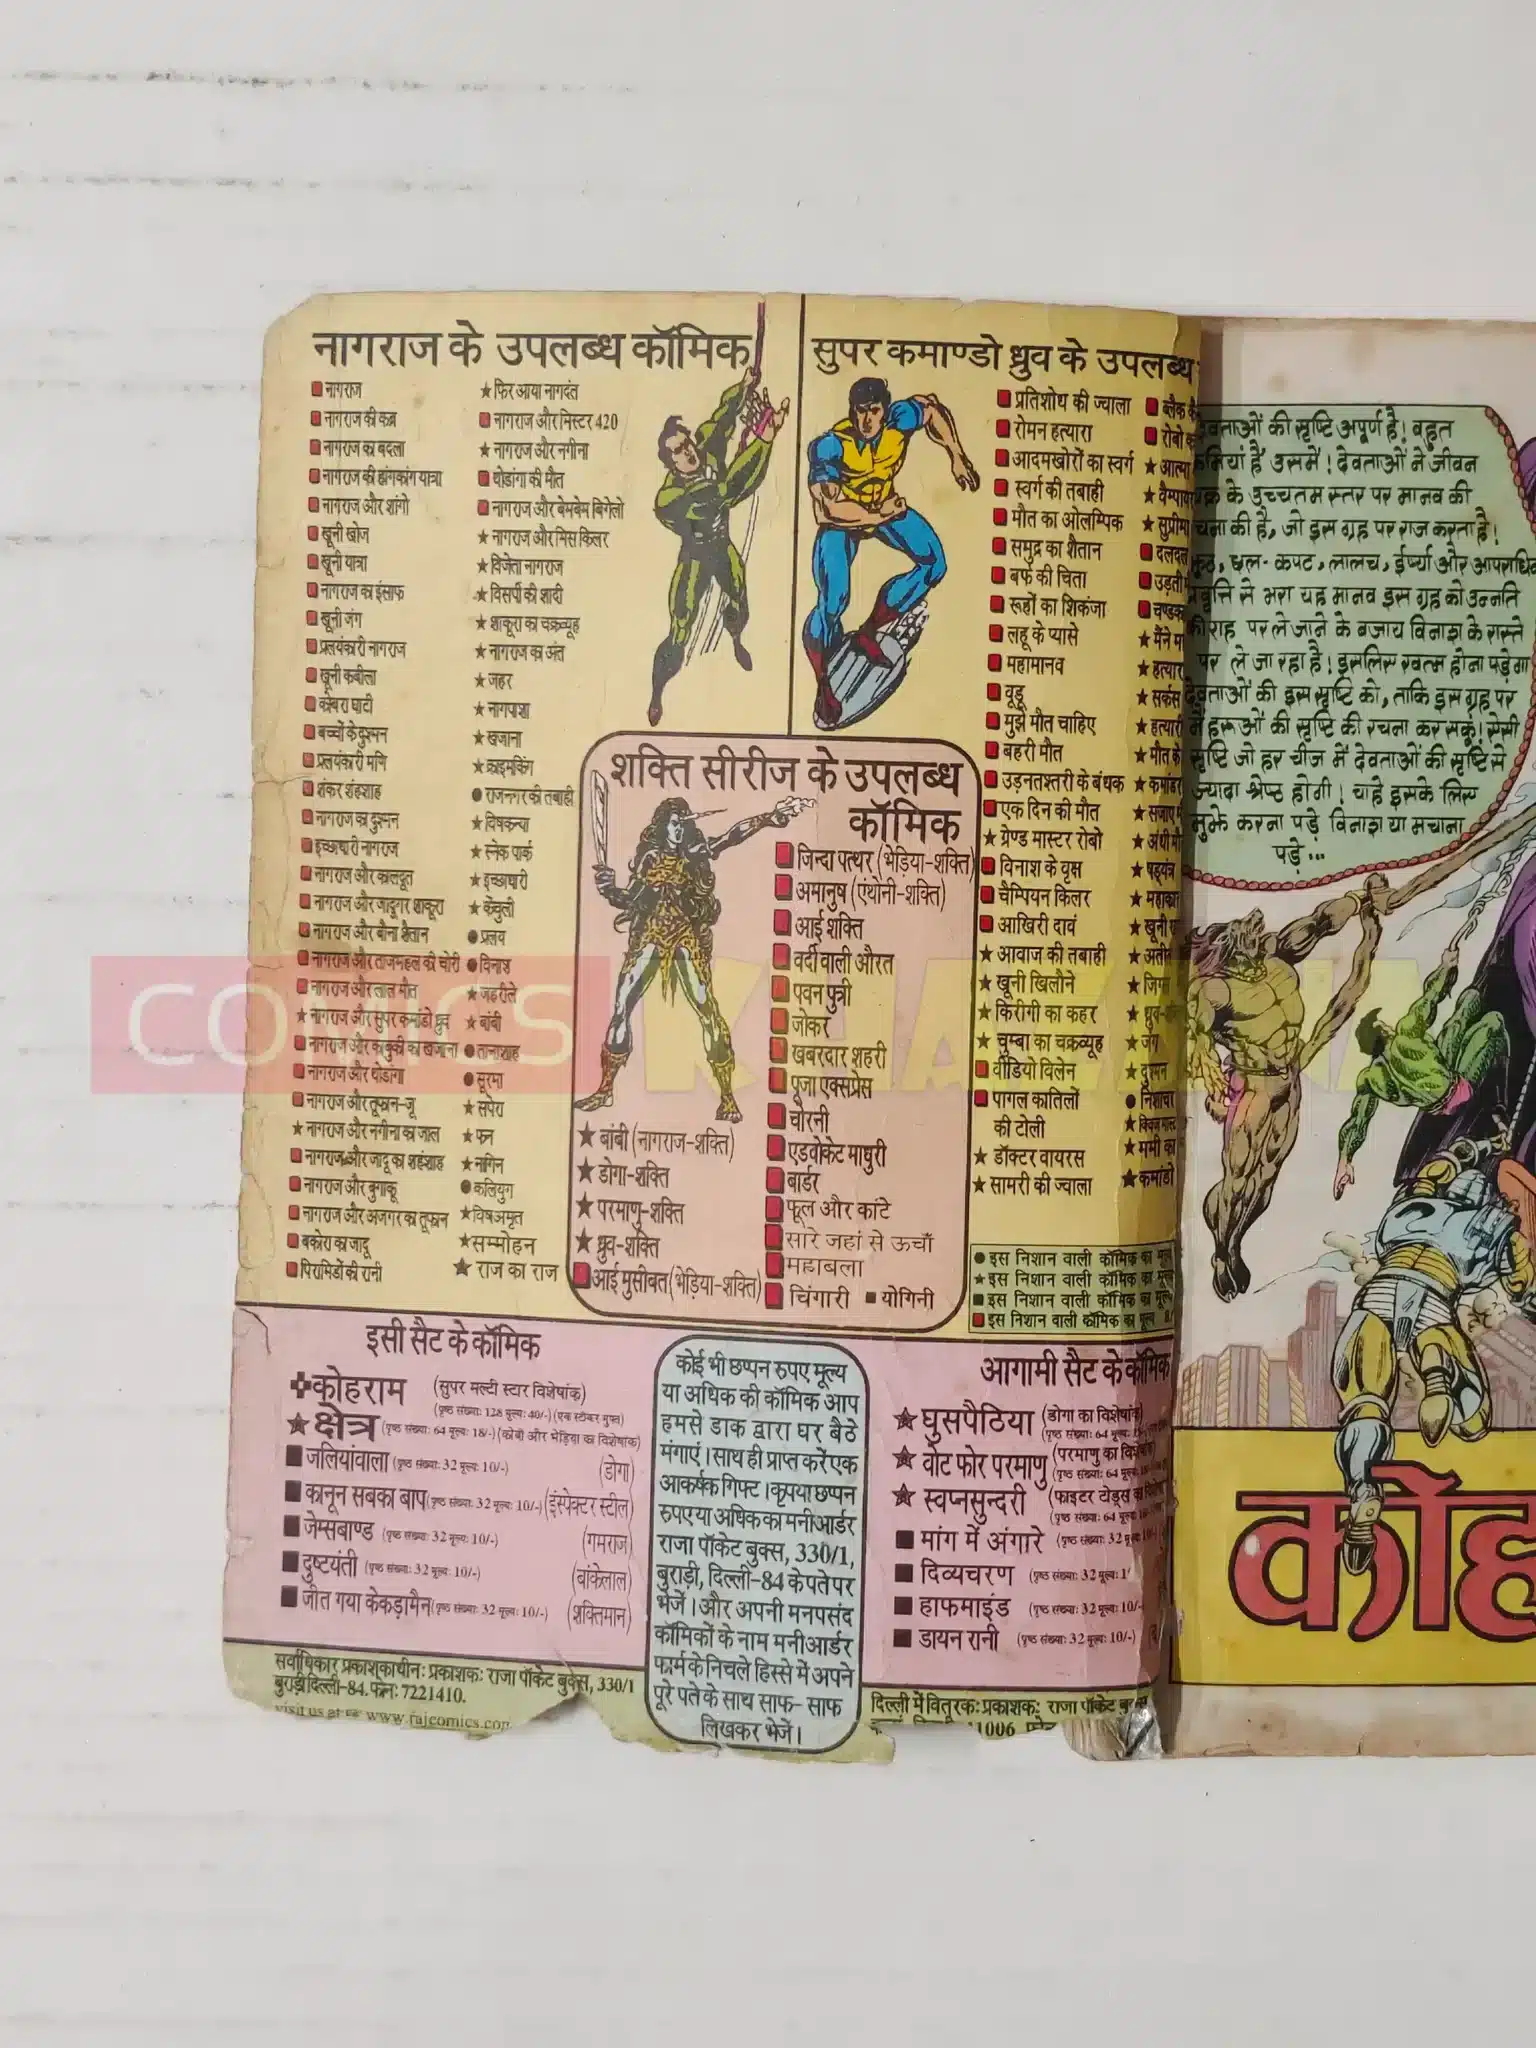 नागराज के उपलब्ध कॉमिक
नागराज
नागराज की कब्र
नागराज का बदला
नागराज की हांगकांग यात्रा
नागराज और शांगो
खूनी खोज
खूनी यात्रा
नागराज का इंसाफ
खूनी जंग
प्रलयंकारी नागराज
खूनी कबीला
कोबरा घाटी
बच्चों के दुश्मन
प्रलयंकारी मणि
शंकर शहंशाह
नागराज का दुश्मन
इच्छाधारी नागराज
नागराज और कालदूत
नागराज और जादूगर शाकूरा
नागराज और बौना शैतान
नागराज और ताजमहल की चोरी
नागराज और लाल मौत
★ नागराज और सुपर कमांडो ध्रुव
नागराज और काबुकी का खजाना
नागराज और थोडांगा
नागराज और तूफान-जू
★ नागराज और नगीना का जाल
नागराज और जादू का शहंशाह
नागराज और बुगाकू
नागराज और अजगर का तूफान
बकोरा का जादू
पिरामिडों की रानी
★ फिर आया नागदंत
नागराज और मिस्टर 420
★ नागराज और नगीना
थोडांगा की मौत
नागराज और बेमबेम बिगेलो
★ नागराज और मिस किलर
★ विजेता नागराज
★ विसर्पी की शादी
★ शाकूरा का चक्रव्यूह
★ नागराज का अंत
★ जहर
★ नागपाशा
★ खजाना
★ क्राइमकिंग
● राजनगर की तबाही
★ विषकन्या
★ स्नेक पार्क
★ इच्छाधारी
★ केंचुली
● प्रलय
● विनाश
★ जहरीले
★ बांबी
● तानाशाह
● सूरमा
★ सपेरा
★ फन
★ नागिन
● कलियुग
★ विषअमृत
★ सम्मोहन
★ राज का राज
सुपर कमाण्डो ध्रुव के उपलब्ध
प्रतिशोध की ज्वाला
रोमन हत्यारा
आदमखोरों का स्वर्ग
स्वर्ग की तबाही
मौत का ओलम्पिक
समुद्र का शैतान
बर्फ की चिता
रूहों का शिकंजा
लहू के प्यासे
महामानव
वूडू
मुझे मौत चाहिए
बहरी मौत
उड़नतश्तरी के बंधक
एक दिन की मौत
★ ग्रेण्ड मास्टर रोबो
विनाश के वृक्ष
चैम्पियन किलर
आखिरी दावं
★ आवाज की तबाही
★ खूनी खिलौने
★ किरीगी का कहर
★ चुम्बा का चक्रव्यूह
वीडियो विलेन
पागल कातिलों
की टोली
★ डॉक्टर वायरस
★ सामरी की ज्वाला
ब्लैक
★ षड्यंत्र
★ जंग
★ दुश्मन
● निशाचर
★ ममी का
★ कमांडो
● इस निशान वाली कॉमिक का
★ इस निशान वाली कॉमिक का
■ इस निशान वाली कॉमिक का मूल्य
इस निशान वाली कॉमिक का मूल्य
शक्ति सीरीज के उपलब्ध
कॉमिक
जिन्दा पत्थर (भेड़िया-शक्ति)
अमानुष (एंथोनी-शक्ति)
आई शक्ति
वर्दी वाली औरत
पवन पुत्री
जोकर
खबरदार शहरी
पूजा एक्सप्रेस
चोरनी
एडवोकेट माधुरी
बार्डर
फूल और कांटे
सारे जहां से ऊचाँ
महाबला
चिंगारी ■ योगिनी
★ बांबी (नागराज-शक्ति)
★ डोगा-शक्ति
★ परमाणु-शक्ति
★ ध्रुव-शक्ति
आई मुसीबत (भेड़िया-शक्ति)
इसी सैट के कॉमिक
कोहराम (सुपर मल्टी स्टार विशेषांक)
(पृष्ठ संख्या: 128 मूल्य: 40/-) (एक स्टीकर मुफ्त)
★ क्षेत्र (पृष्ठ संख्या: 64 मूल्य: 18/-) (कोबी और भेड़िया का विशेषांक)
■ जलियांवाला (पृष्ठ संख्या: 32 मूल्य: 10/-) (डोगा)
■ कानून सबका बाप (पृष्ठ संख्या: 32 मूल्य: 10/-) (इंस्पेक्टर स्टील)
■ जेम्सबाण्ड (पृष्ठ संख्या: 32 मूल्य: 10/-) (गमराज)
■ दुष्टयंती (पृष्ठ संख्या: 32 मूल्य: 10/-) (बांकेलाल)
■ जीत गया केकड़ामैन (पृष्ठ संख्या: 32 मूल्य: 10/-) (शक्तिमान)
कोई भी छप्पन रुपए मूल्य
या अधिक की कॉमिक आप
हमसे डाक द्वारा घर बैठे
मंगाएं। साथ ही प्राप्त करें एक
आकर्षक गिफ्ट। कृपया छप्पन
रुपए या अधिक का मनीआर्डर
राजा पॉकेट बुक्स, 330/1,
बुराड़ी, दिल्ली-84 के पते पर
भेजें। और अपनी मनपसंद
कॉमिकों के नाम मनीआर्डर
फार्म के निचले हिस्से में अपने
पूरे पते के साथ साफ- साफ
लिखकर भेजें।
आगामी सैट के कॉमिक
★ घुसपैठिया (डोगा का विशेषांक)
★ वोट फोर परमाणु (परमाणु का
★ स्वप्नसुन्दरी (फाइटर टोड्स का
■ मांग में अंगारे (पृष्ठ संख्या: 32 मूल्य: 10/-)
■ दिव्यचरण (पृष्ठ संख्या: 32 मूल्य:
■ हाफमाइंड (पृष्ठ संख्या: 32 मूल्य: 10/-
■ डायन रानी (पृष्ठ संख्या: 32 मूल्य: 10/-)
सर्वाधिकार प्रकाशकाधीन: प्रकाशक: राजा पॉकेट बुक्स, 330/1
बुराड़ी दिल्ली-84. फोन: 7221410.
visit us at www.rajcomics.com
दिल्ली में वितरक: प्रकाशक: राजा पॉकेट
देवताओं की सृष्टि अपूर्ण है! बहुत
कमियां हैं उसमें! देवताओं ने जीवन
के उच्चतम स्तर पर मानव की
रचना की है, जो इस ग्रह पर राज करता है!
झूठ, छल-कपट, लालच, ईर्ष्या और आपराधिक
प्रवृत्ति से भरा यह मानव इस ग्रह को उन्नति
की राह पर ले जाने के बजाय विनाश के रास्ते
पर ले जा रहा है! इसलिए खत्म होना पड़ेगा
देवताओं की इस सृष्टि को, ताकि इस ग्रह पर
मैं हरूओं की सृष्टि की रचना कर सकूं! ऐसी
सृष्टि जो हर चीज में देवताओं की सृष्टि से
ज्यादा श्रेष्ठ होगी! चाहे इसके लिए
मुझे करना पड़े विनाश या मचाना
पड़े...
कोह
COMICS KHAZANA